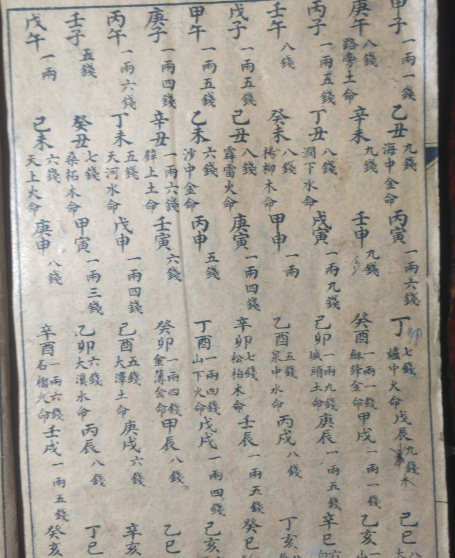 甲子 一兩一錢 乙丑 九錢 海中金命 丙寅 一兩六錢 丁卯 七錢 爐中火命 戊辰 九錢 木 己巳
庚午 八錢 路旁土命 辛未 九錢 壬申 九錢 癸酉 一兩一錢 劍鋒金命 甲戌 一兩一錢 乙亥
丙子 一兩五錢 丁丑 八錢 澗下水命 戊寅 一兩九錢 己卯 一兩九錢 城頭土命 庚辰 一兩五錢 辛巳
壬午 八錢 癸未 八錢 楊柳木命 甲申 一兩 乙酉 五錢 泉中水命 丙戌 八錢 丁亥
戊子 一兩五錢 己丑 八錢 霹雷火命 庚寅 一兩四錢 辛卯 七錢 松柏木命 壬辰 一兩五錢 癸巳
甲午 一兩五錢 乙未 六錢 沙中金命 丙申 五錢 丁酉 一兩四錢 山下火命 戊戌 一兩四錢 己亥
庚子 一兩四錢 辛丑 一兩六錢 壁上土命 壬寅 六錢 癸卯 一兩四錢 金簿金命 甲辰 八錢 乙巳
丙午 一兩六錢 丁未 五錢 天河水命 戊申 一兩四錢 己酉 五錢 大澤土命 庚戌 六錢 辛亥
壬子 五錢 癸丑 七錢 桑柘木命 甲寅 一兩三錢 乙卯 六錢 大溪水命 丙辰 八錢 丁巳
戊午 一兩 己未 六錢 天上火命 庚申 八錢 辛酉 一兩六錢 石榴火命 壬戌 一兩五錢 癸亥